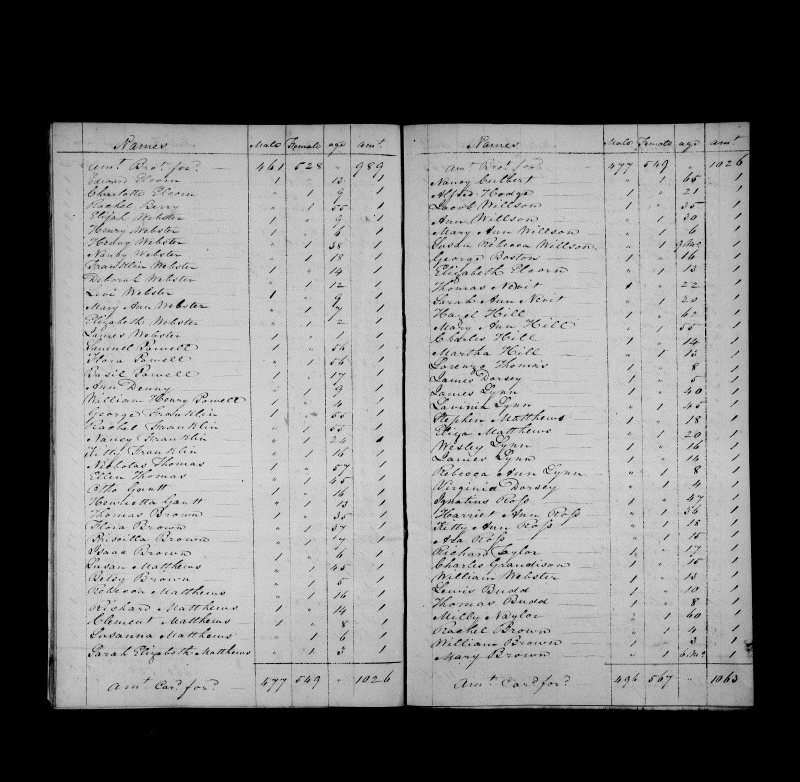 Names Male Female age amt.
Amt. Brot. for. 461 528 " 989
Edward 1 " 13 1
Charlotte " 1 9 1
Rachel Berry " 1 55 1
Elijah Webster 1 " 9 1
Henry Webster 1 " 6 1
Webster 1 " 38 1
Nancy Webster " 1 18 1
Franklin Webster 1 " 14 1
Deborah Webster " 1 12 1
Levi Webster 1 " 9 1
Mary Ann Webster " 1 7 1
Elizabeth Webster " 1 2 1
James Webster 1 " 1 1
Samuel Powell 1 " 56 1
Flora Powell " 1 56 1
Basil Powell 1 " 17 1
Ann Denny " 1 9 1
William Henry Powell 1 " 4 1
George Franklin 1 " 55 1
Rachel Franklin " 1 55 1
Nancy Franklin " 1 24 1
Kitty Franklin " 1 16 1
Nicholas Thomas 1 " 57 1
Ellen Thomas " 1 45 1
Otho Gantt 1 " 16 1
Henrietta Gantt " 1 13 1
Thomas Brown 1 " 35 1
Flora Brown " 1 37 1
Priscilla Brown " 1 17 1
Isaac Brown 1 " 6 1
Susan Matthews " 1 45 1
Betsy Brown " 1 5 1
Rebecca Matthews " 1 16 1
Richard Matthews 1 " 14 1
Clement Matthews 1 " 8 1
Susanna Matthews " 1 6 1
Sarah Elizabeth Matthews " 1 3 1
Amt. Card. for. 477 549 " 1026
Names Male Female age amt.
Amt. Brot. for. 477 549 " 1026
Nancy Culbert " 1 65 1
Alfred Hodge 1 " 21 1
Jacob Willson 1 " 35 1
Ann Willson " 1 30 1
Mary Ann Willson " 1 6 1
Susan Rebecca Willson " 1 9 Mo. 1
George Boston 1 " 16 1
Elizabeth " 1 13 1
Thomas Nevit 1 " 22 1
Sarah Ann Nevit " 1 20 1
Hazel Hill 1 " 62 1
Mary Ann Hill " 1 55 1
Charles Hill 1 " 14 1
Martha Hill " 1 13 1
Lorenzo Thomas 1 " 8 1
James Dorsey 1 " 5 1
James Lynn 1 " 40 1
Lavinia Lynn " 1 45 1
Stephen Matthews 1 " 18 1
Eliza Matthews " 1 20 1
Wesley Lynn 1 " 16 1
James Lynn 1 " 14 1
Rebecca Ann Lynn " 1 8 1
Virginia Dorsey " 1 4 1
Ignatius Ross 1 " 47 1
Harriet Ann Ross " 1 36 1
Kitty Ann Ross " 1 18 1
Asa Ross 1 " 15 1
Richard Taylor 1 " 17 1
Charles Grandison 1 " 15 1
William Webster 1 " 13 1
Lewis Budd 1 " 10 1
Thomas Budd 1 " 8 1
Milly Naylor " 1 60 1
Rachel Brown " 1 4 1
William Brown 1 " 3 1
Mary Brown " 1 6 Mo. 1
Amt. Card. for. 496 567 " 1063